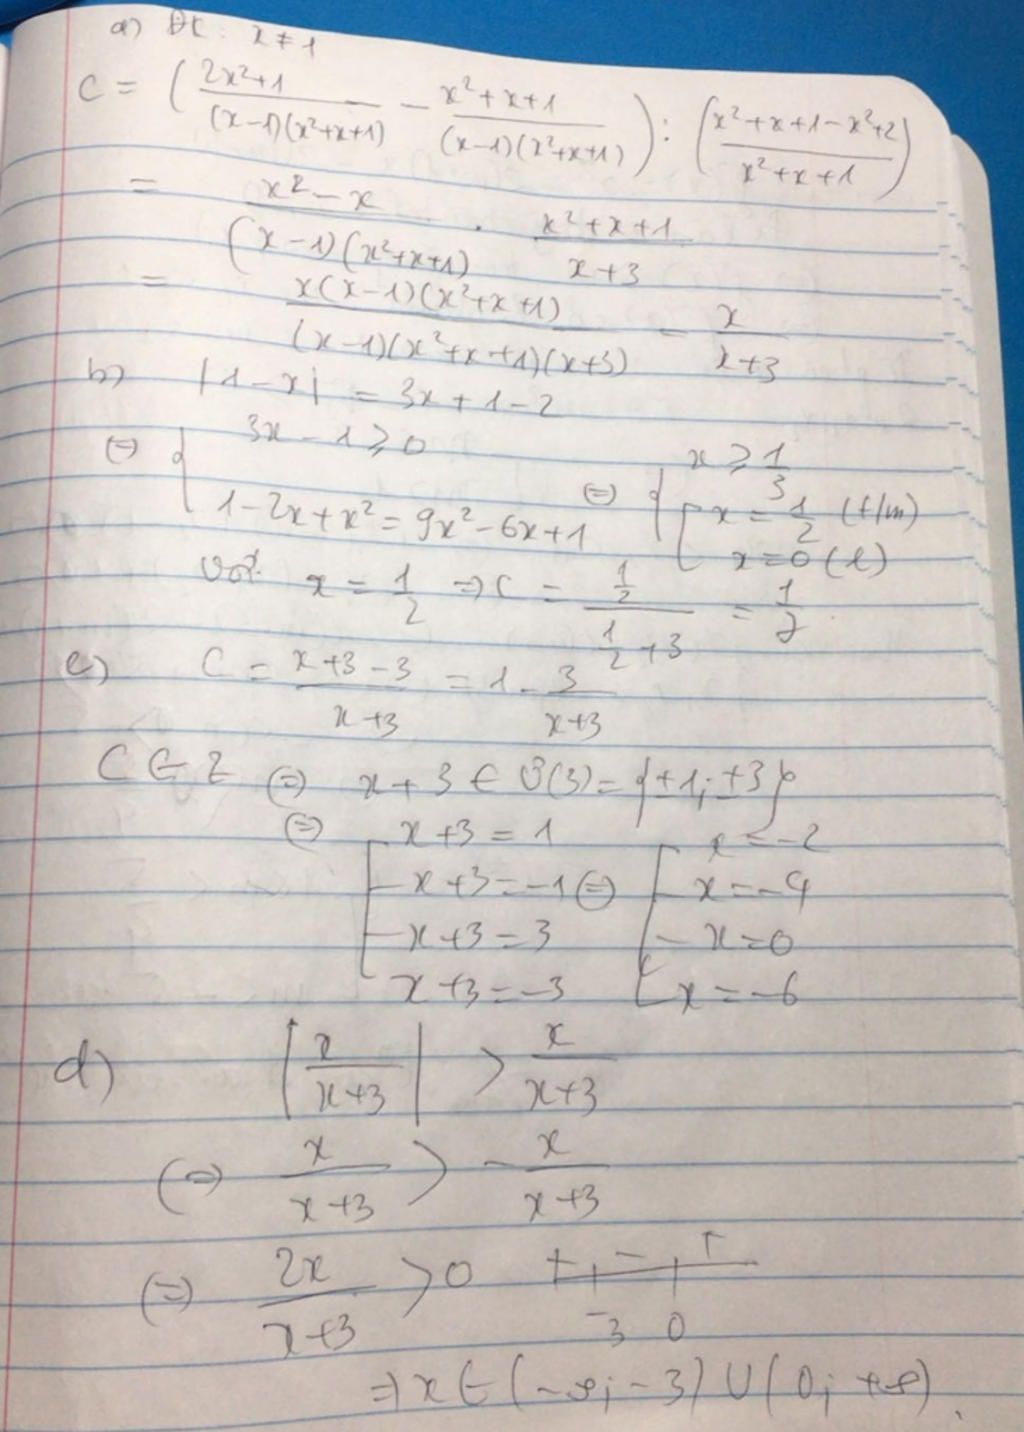 a) ĐK: x ≠ 1
C = (2x²+1 / (x-1)(x²+x+1) - x²+x+1 / (x-1)(x²+x+1)) : (x²+x+1-x²+2 / x²+x+1)
= x²-x / (x-1)(x²+x+1) . x²+x+1 / x+3
= x(x-1)(x²+x+1) / (x-1)(x²+x+1)(x+3) = x / x+3
b) |1-x| = 3x+1-2
(=) { 3x-1 ≥ 0
1-2x+x² = 9x²-6x+1 (=) { x ≥ 1/3
[ x = 1/2 (t/m)
x=0 (l)
Với x = 1/2 => C = 1/2 / 1/2 + 3 = 1/7
c) C = x+3-3 / x+3 = 1 - 3 / x+3
C ∈ Z (=) x+3 ∈ Ư(3) = {±1; ±3}
(=) [ x+3 = 1
x+3 = -1
x+3 = 3
x+3 = -3 (=) [ x = -2
x = -4
x = 0
x = -6
d) |x / x+3| > x / x+3
(=) x / x+3 > - x / x+3
(=) 2x / x+3 > 0 + - +
-3 0
=> x ∈ (-∞; -3) ∪ (0; +∞).